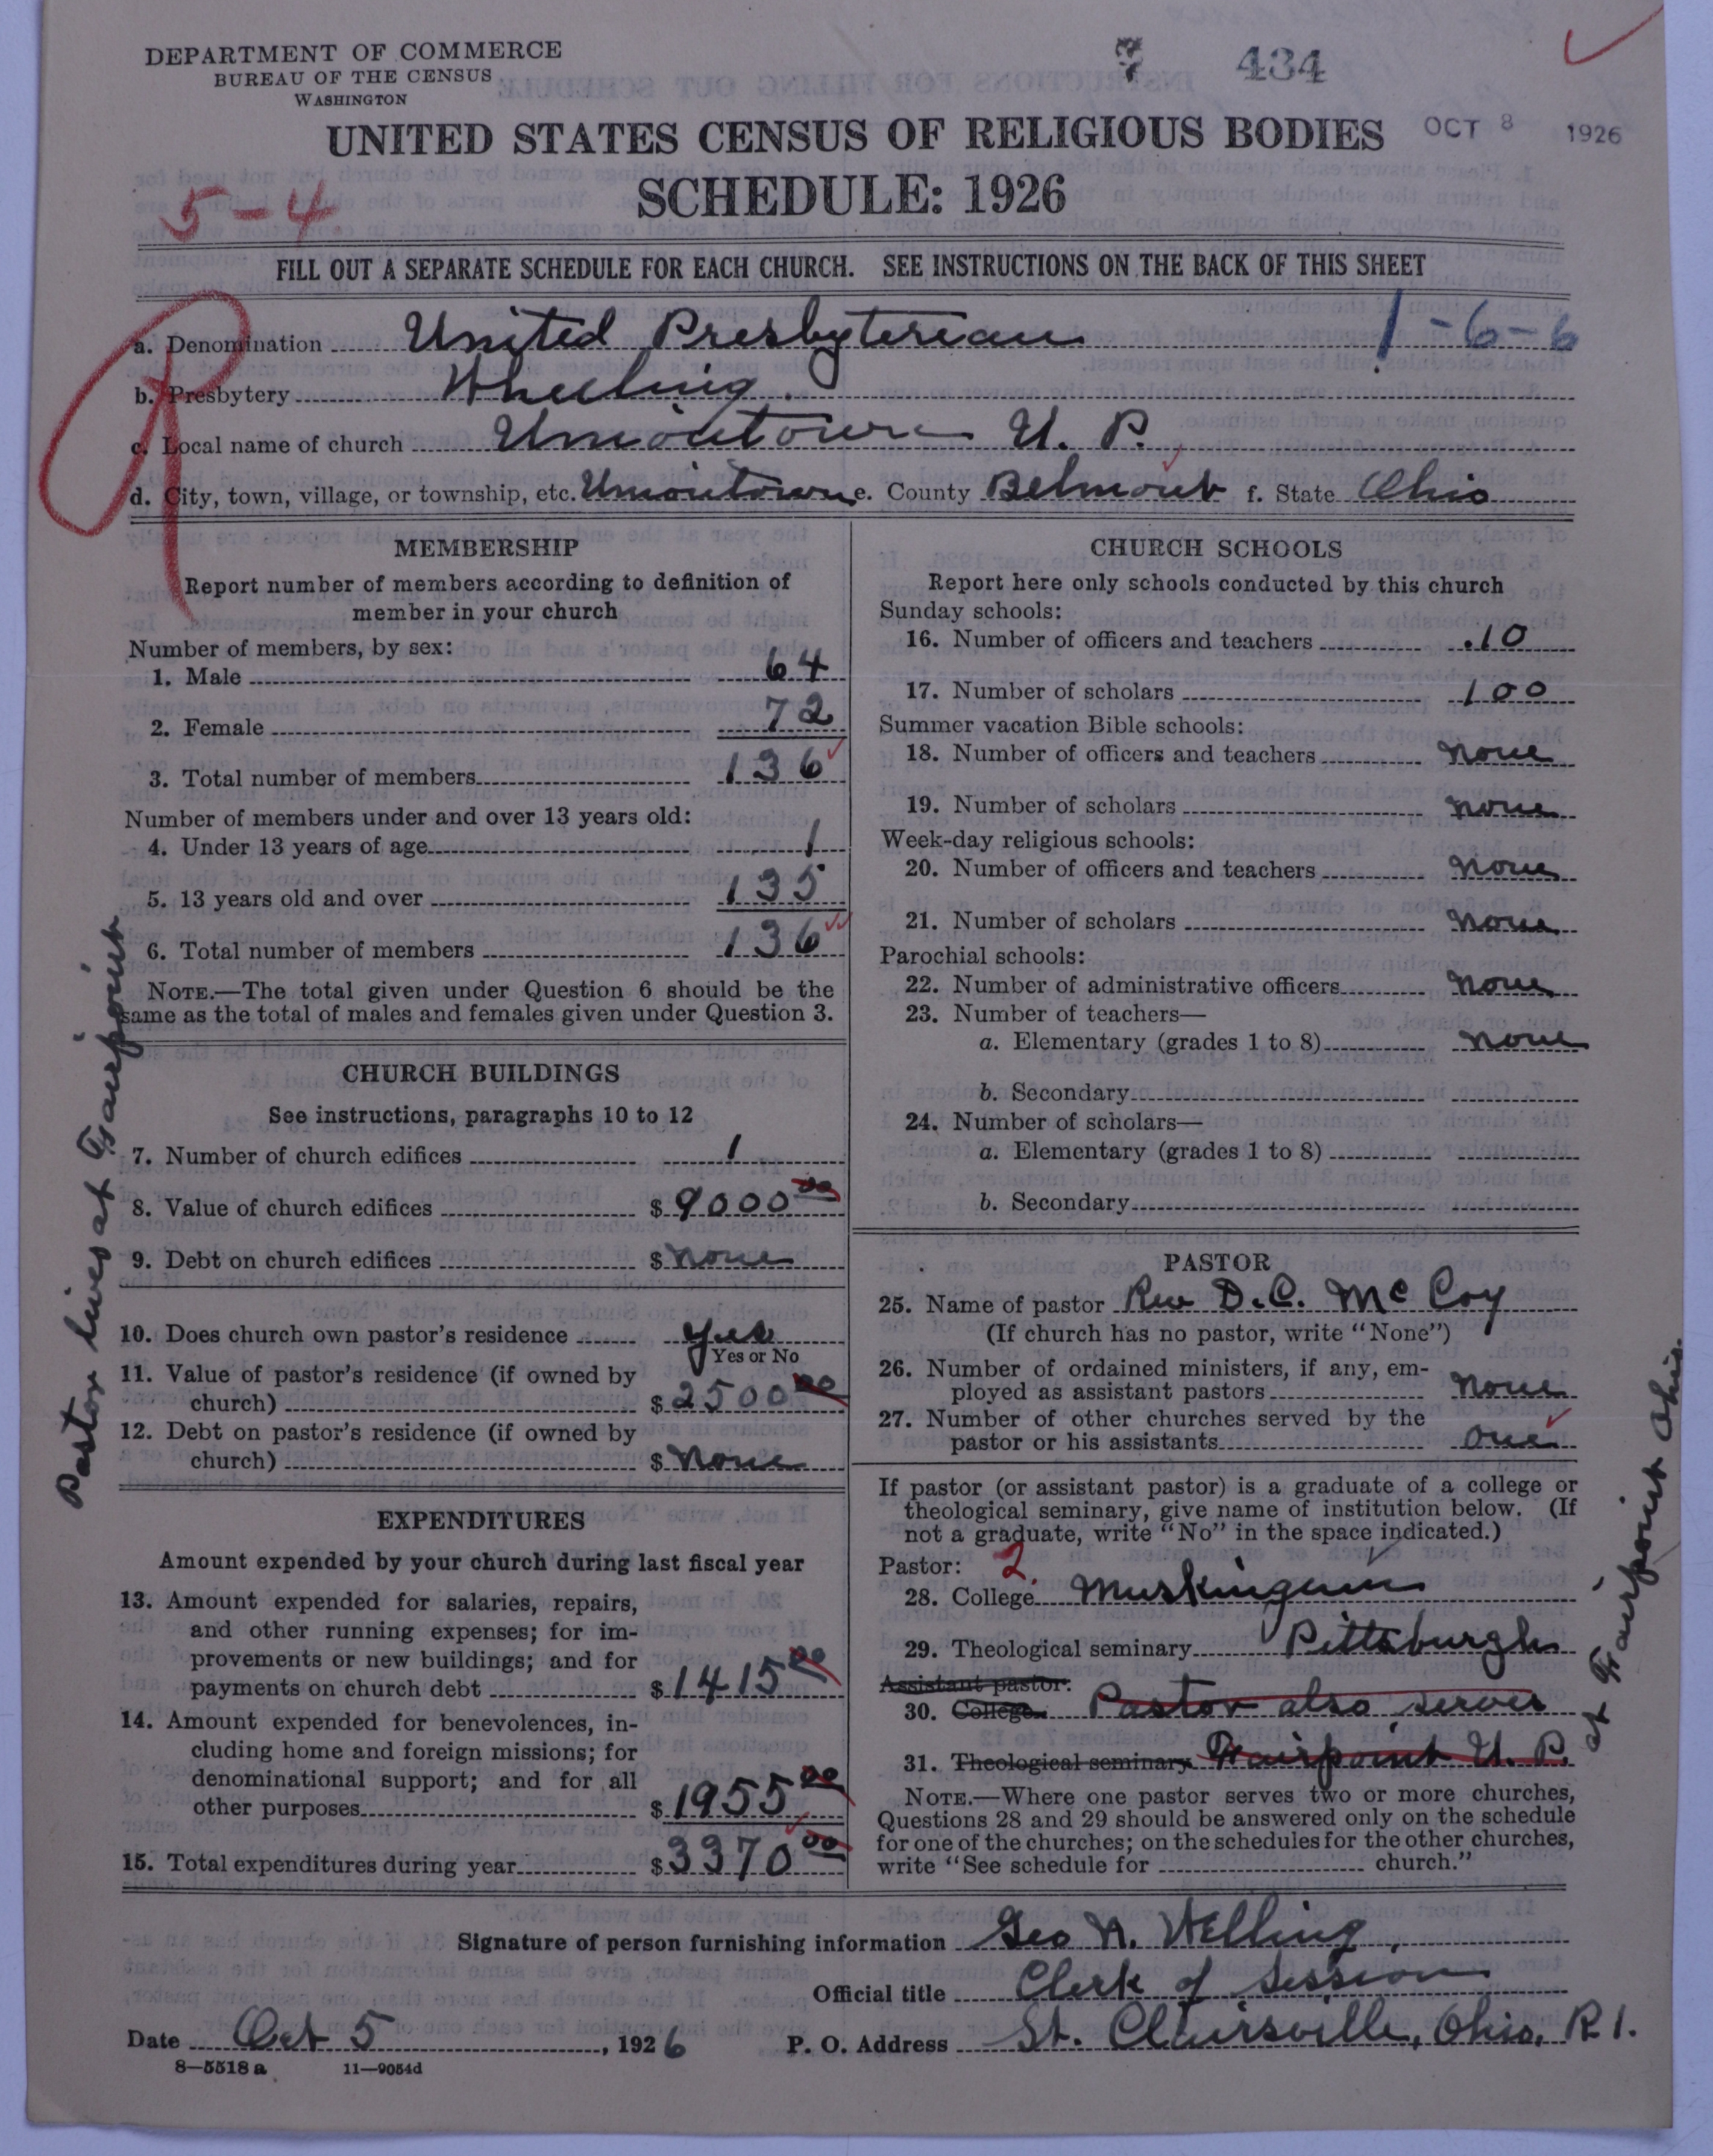 DEPARTMENT OF COMMERCE
BUREAU OF THE CENSUS
WASHINGTON
434
UNITED STATES CENSUS OF RELIGIOUS BODIES
OCT 8 1926
SCHEDULE: 1926
5-4
FILL OUT A SEPARATE SCHEDULE FOR EACH CHURCH. SEE INSTRUCTIONS ON THE BACK OF THIS SHEET
R
a. Denomination United Presbyterian 1-6-6
b. Presbytery Wheeling
c. Local name of church Uniontown U. P.
d. City, town, village, or township, etc. Uniontown e. County Belmont f. State Ohio
MEMBERSHIP
Report number of members according to definition of
member in your church
Number of members, by sex:
1. Male 64
2. Female 72
3. Total number of members 136
Number of members under and over 13 years old:
4. Under 13 years of age 1
5. 13 years old and over 135
6. Total number of members 136
NOTE.—The total given under Question 6 should be the
same as the total of males and females given under Question 3.
CHURCH BUILDINGS
See instructions, paragraphs 10 to 12
7. Number of church edifices 1
8. Value of church edifices $ 9000 00
9. Debt on church edifices $ none
10. Does church own pastor's residence yes
Yes or No
11. Value of pastor's residence (if owned by
church) $ 2500 00
12. Debt on pastor's residence (if owned by
church) $ None
EXPENDITURES
Amount expended by your church during last fiscal year
13. Amount expended for salaries, repairs,
and other running expenses; for im-
provements or new buildings; and for
payments on church debt $ 1415 00
14. Amount expended for benevolences, in-
cluding home and foreign missions; for
denominational support; and for all
other purposes $ 1955 00
15. Total expenditures during year $ 3370 00
Pastor lives at Fairpoint
CHURCH SCHOOLS
Report here only schools conducted by this church
Sunday schools:
16. Number of officers and teachers 10
17. Number of scholars 100
Summer vacation Bible schools:
18. Number of officers and teachers none
19. Number of scholars none
Week-day religious schools:
20. Number of officers and teachers none
21. Number of scholars none
Parochial schools:
22. Number of administrative officers none
23. Number of teachers—
a. Elementary (grades 1 to 8) none
b. Secondary
24. Number of scholars—
a. Elementary (grades 1 to 8)
b. Secondary
PASTOR
25. Name of pastor Rev D. C. McCoy
(If church has no pastor, write "None")
26. Number of ordained ministers, if any, em-
ployed as assistant pastors none
27. Number of other churches served by the
pastor or his assistants one
If pastor (or assistant pastor) is a graduate of a college or
theological seminary, give name of institution below. (If
not a graduate, write "No" in the space indicated.)
Pastor: 2.
28. College Muskingum
29. Theological seminary Pittsburgh
Assistant pastor:
30. College Pastor also serves
31. Theological seminary Fairpoint U. P.
at Fairpoint Ohio.
NOTE.—Where one pastor serves two or more churches,
Questions 28 and 29 should be answered only on the schedule
for one of the churches; on the schedules for the other churches,
write "See schedule for church."
Signature of person furnishing information Geo N. Welling
Official title Clerk of Session
Date Oct 5, 1926 P. O. Address St. Clairsville, Ohio, R 1.
8—5518 a 11—9054d